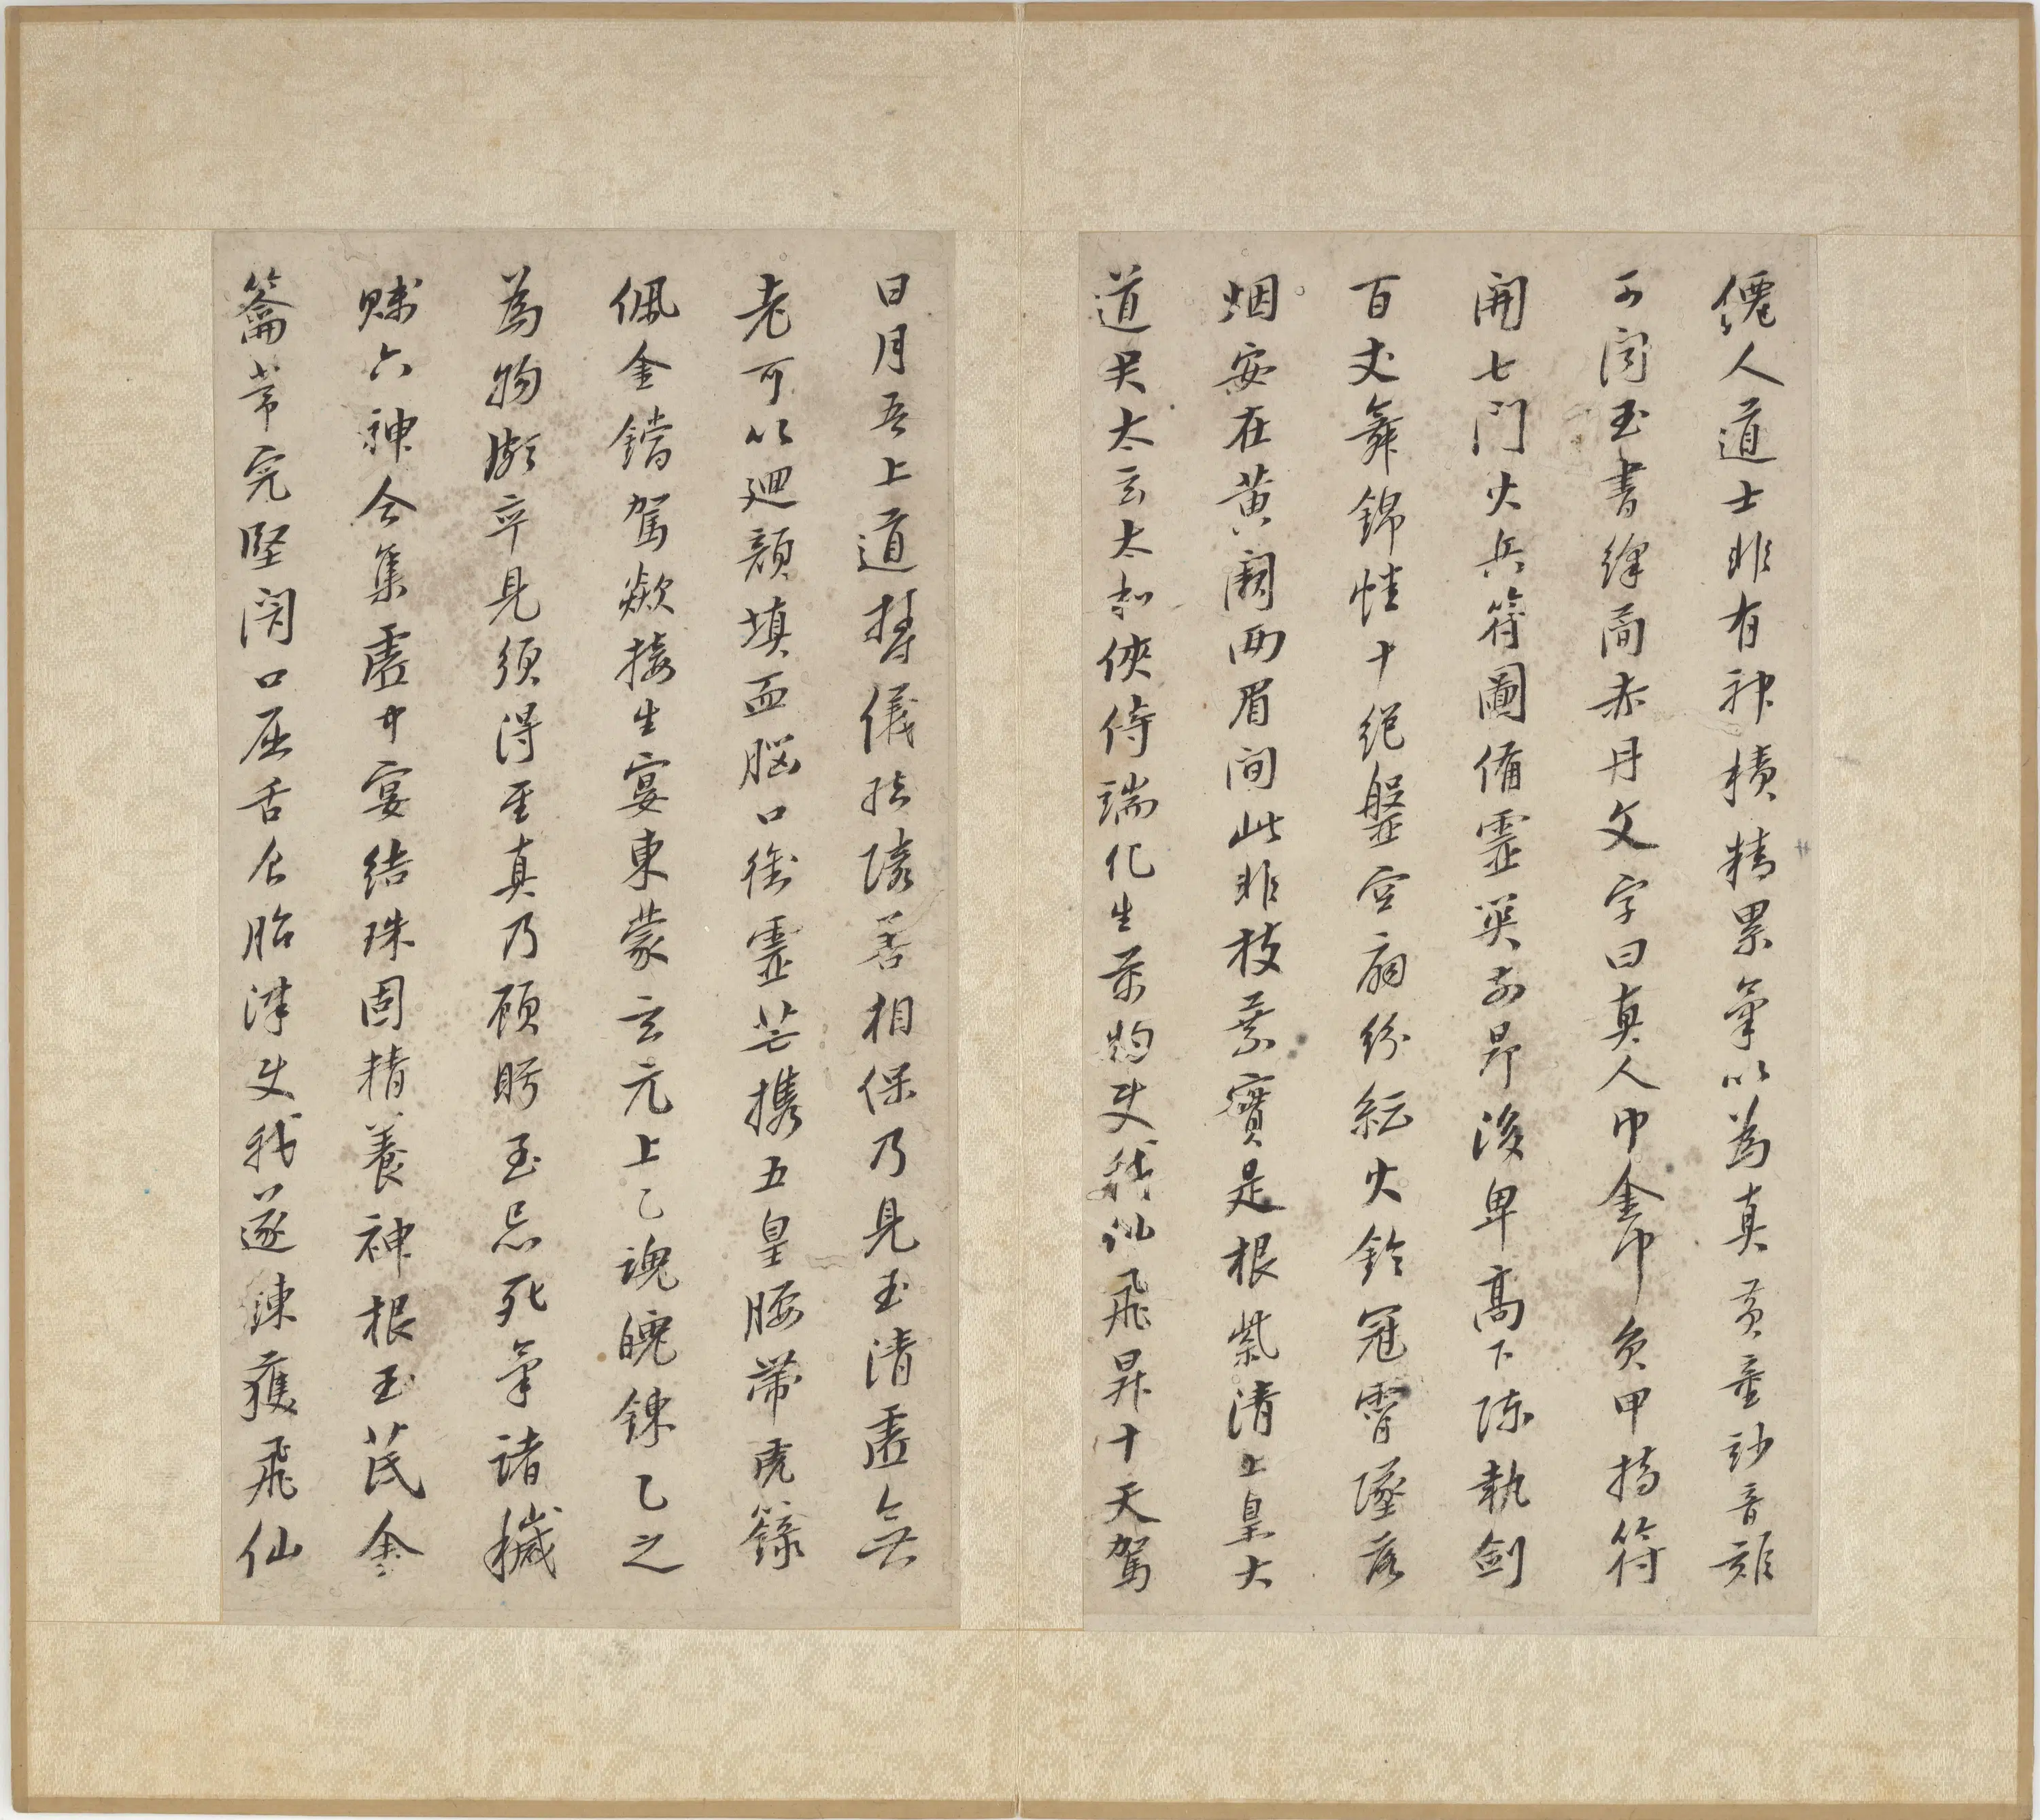 僊人道士非有神積精累氣以為真黃童妙音難
可聞玉書絳蕳赤丹文字曰真人巾金巾負甲持符
開七門火兵符圖備靈英前昂後卑高下陳執劍
百丈舞錦幡十絕盤空扇紛紜火鈴冠霄墜落
烟安在黃闕兩眉間此非枝葉實是根紫清上皇大
道君太玄太和俠侍端化生萬物使我仙飛昇十天駕
日月吾上道鬱儀結璘善相保乃見玉清虛無
老可以迴顏填血腦口銜靈芒攜五皇腰帶虎籙
佩金鐺駕欻接生宴東蒙玄元上乙魂魄鍊乙之
為物頗卒見須得至真乃顧眄至忌死氣諸穢
賤六神合集虛中宴結珠固精養神根玉茋金
籥常完堅閉口屈舌食胎津使我遂鍊獲飛仙